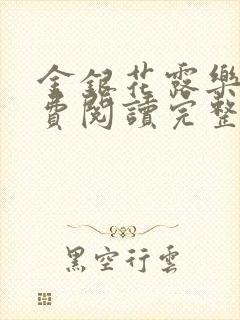 金銀花露樂
費閱讀完整
黑空行雲